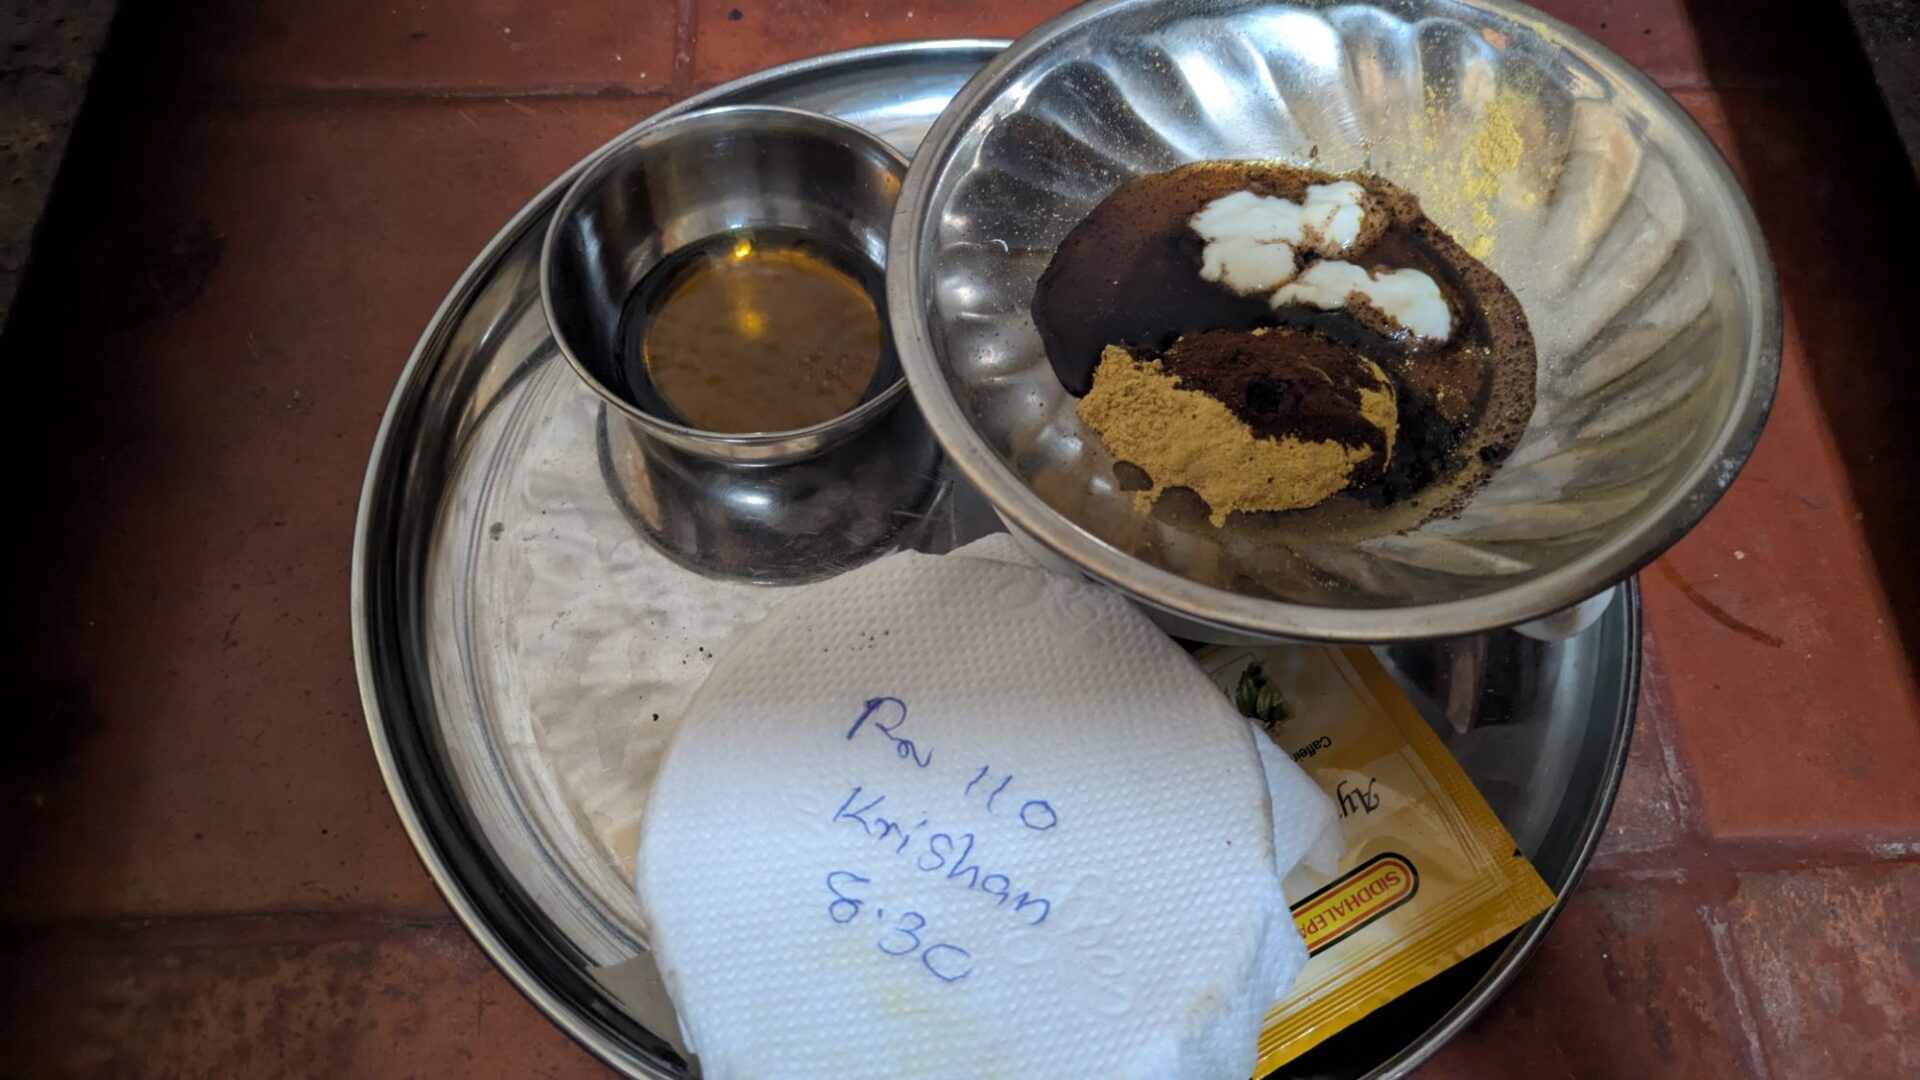 110
Krishan
8.30
Caffein
Ay
SIDDHALEPA